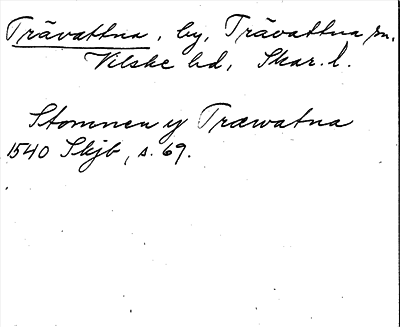 Trävattna, by, Trävattna sn,
Vilske hd, Skar. l.
Stomnen y Træwatna
1540 Skjb, s. 69.